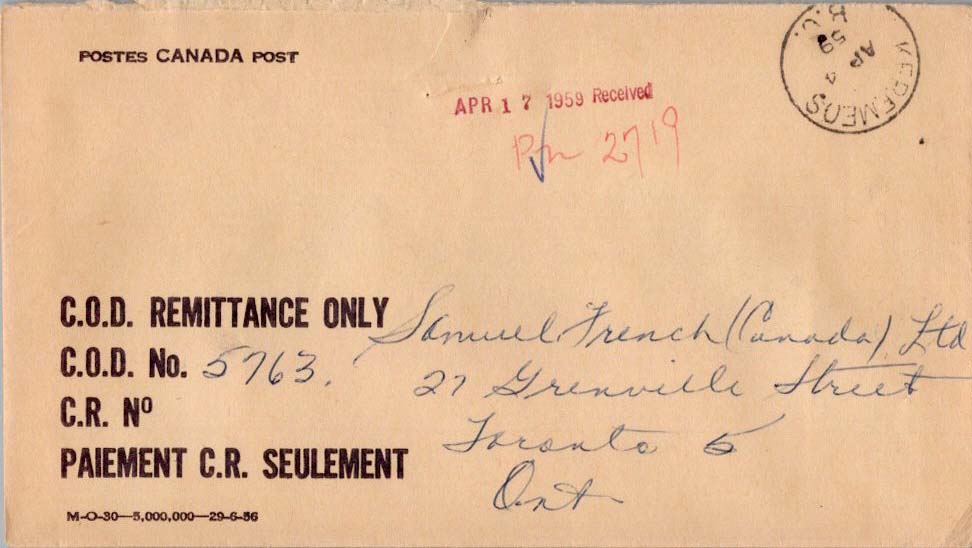 POSTES CANADA POST
APR 17 1959 Received
2719
KEREMEOS
4
AP
59
B.C.
C.O.D. REMITTANCE ONLY
C.O.D. No. 5763.
C.R. Nº
PAIEMENT C.R. SEULEMENT
M-O-30—5,000,000—29-6-56
Samuel French (Canada) Ltd
27 Grenville Street
Toronto 5
Ont